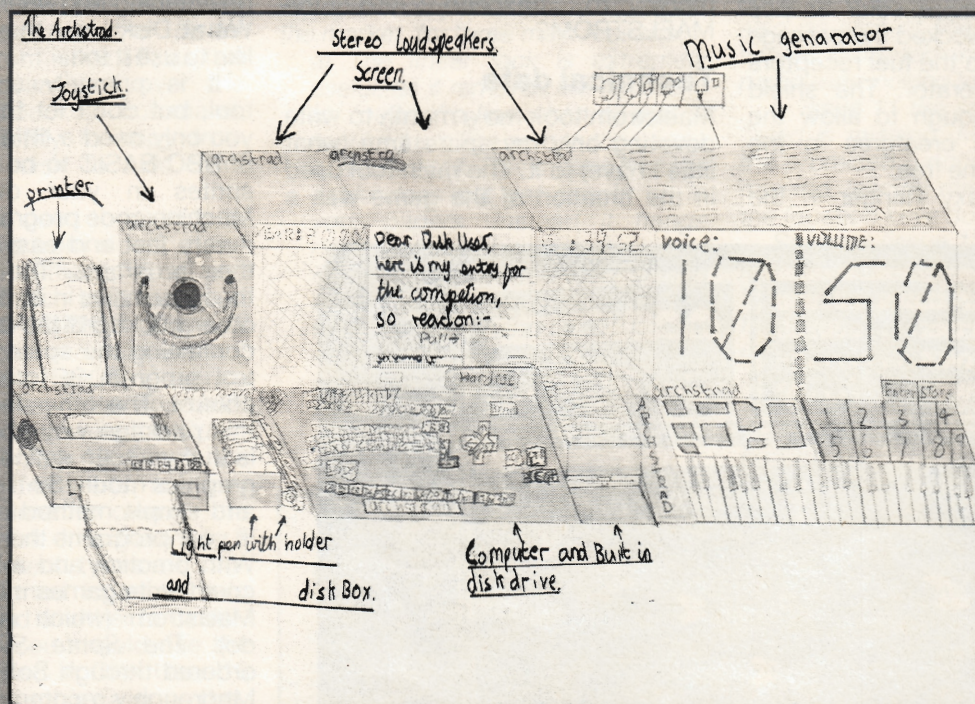 The Archstrad.
Stereo Loudspeakers.
Screen.
Music genarator
Joystick.
printer
archstrad
archstrad
archstrad
archstrad
Dear Dish User,
here is my entry for
the competion,
so read on:-
Pull→
voice:
10
VOLUME:
50
Hardisc
archstrad
archstrad
Enter Store
1 2 3 4
5 6 7 8 9
Light pen with holder
and disk Box.
Computer and Built in
disk drive.